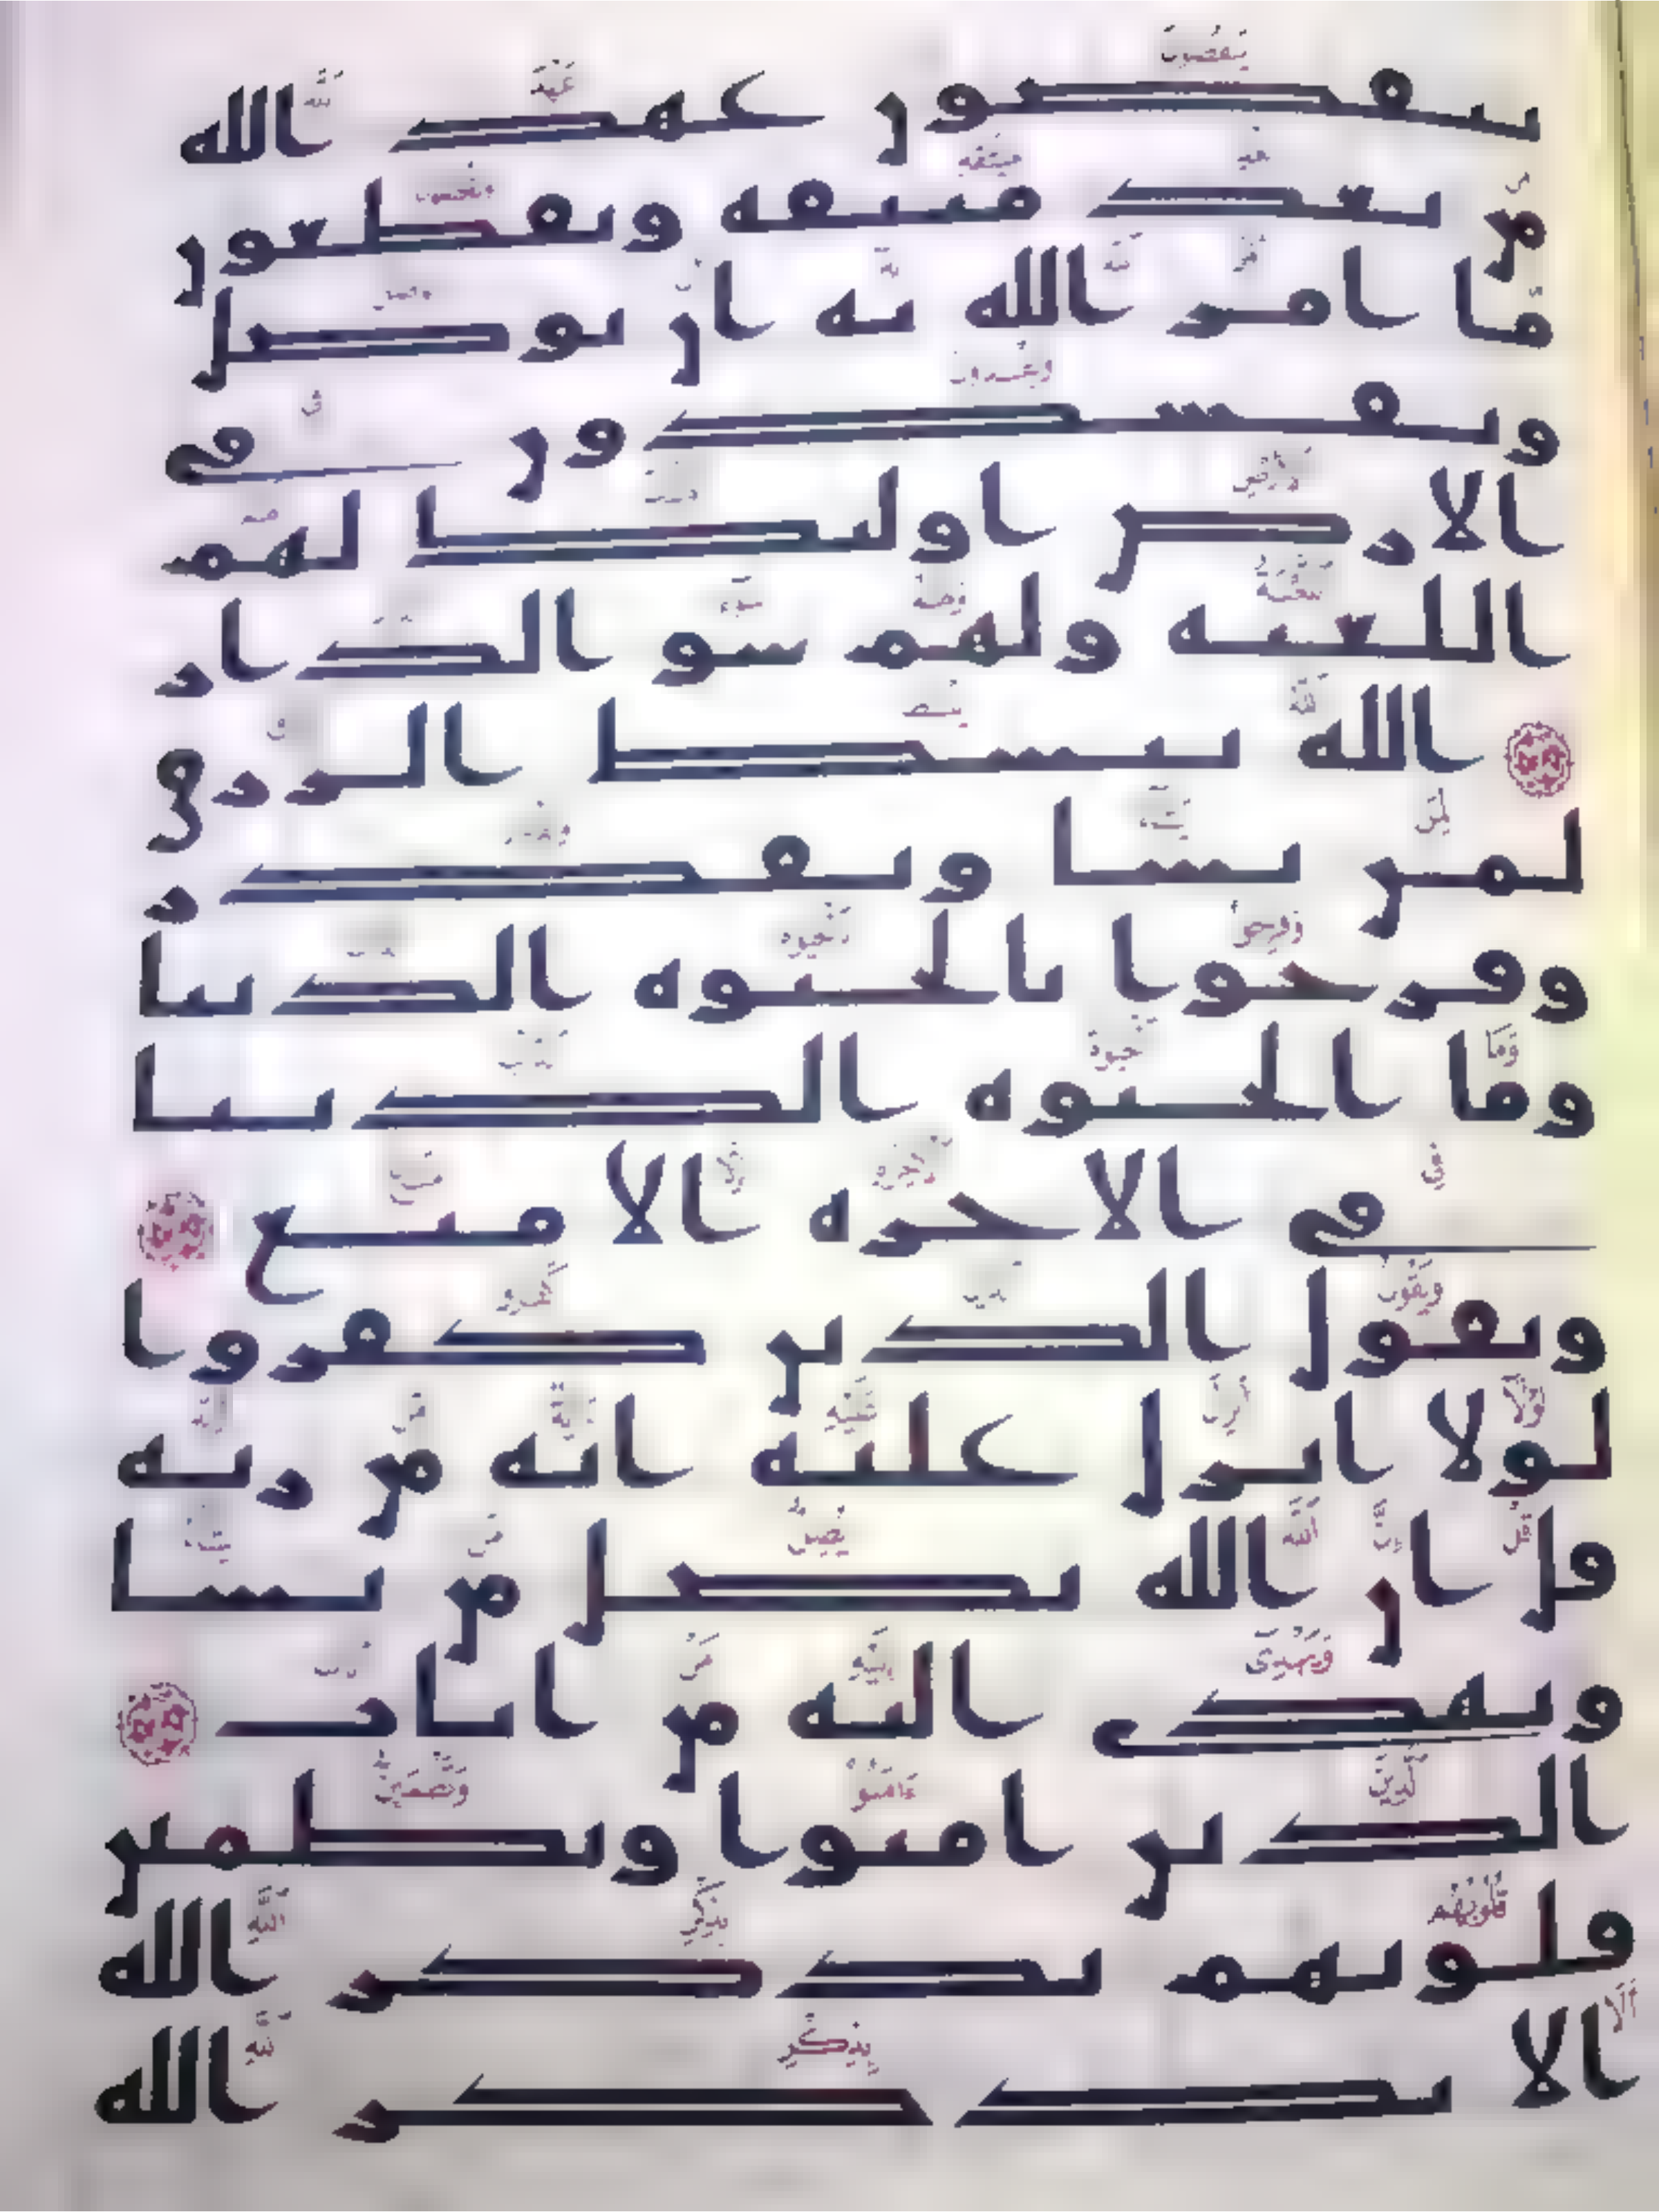 ينقضون عهد الله
من بعد ميثقه ويقطعون
ما امر الله به ان يوصل
ويفسدون في
الارض اولئك لهم
اللعنه ولهم سو الدار
الله يبسط الرزق
لمن يشا ويقدر
وفرحوا بالحيوه الدنيا
وما الحيوه الدنيا
في الاخره الا متع
ويقول الذين كفروا
لولا انزل عليه ايه من ربه
قل ان الله يضل من يشا
ويهدي اليه من اناب
الذين امنوا وتطمئن
قلوبهم بذكر الله
الا بذكر الله